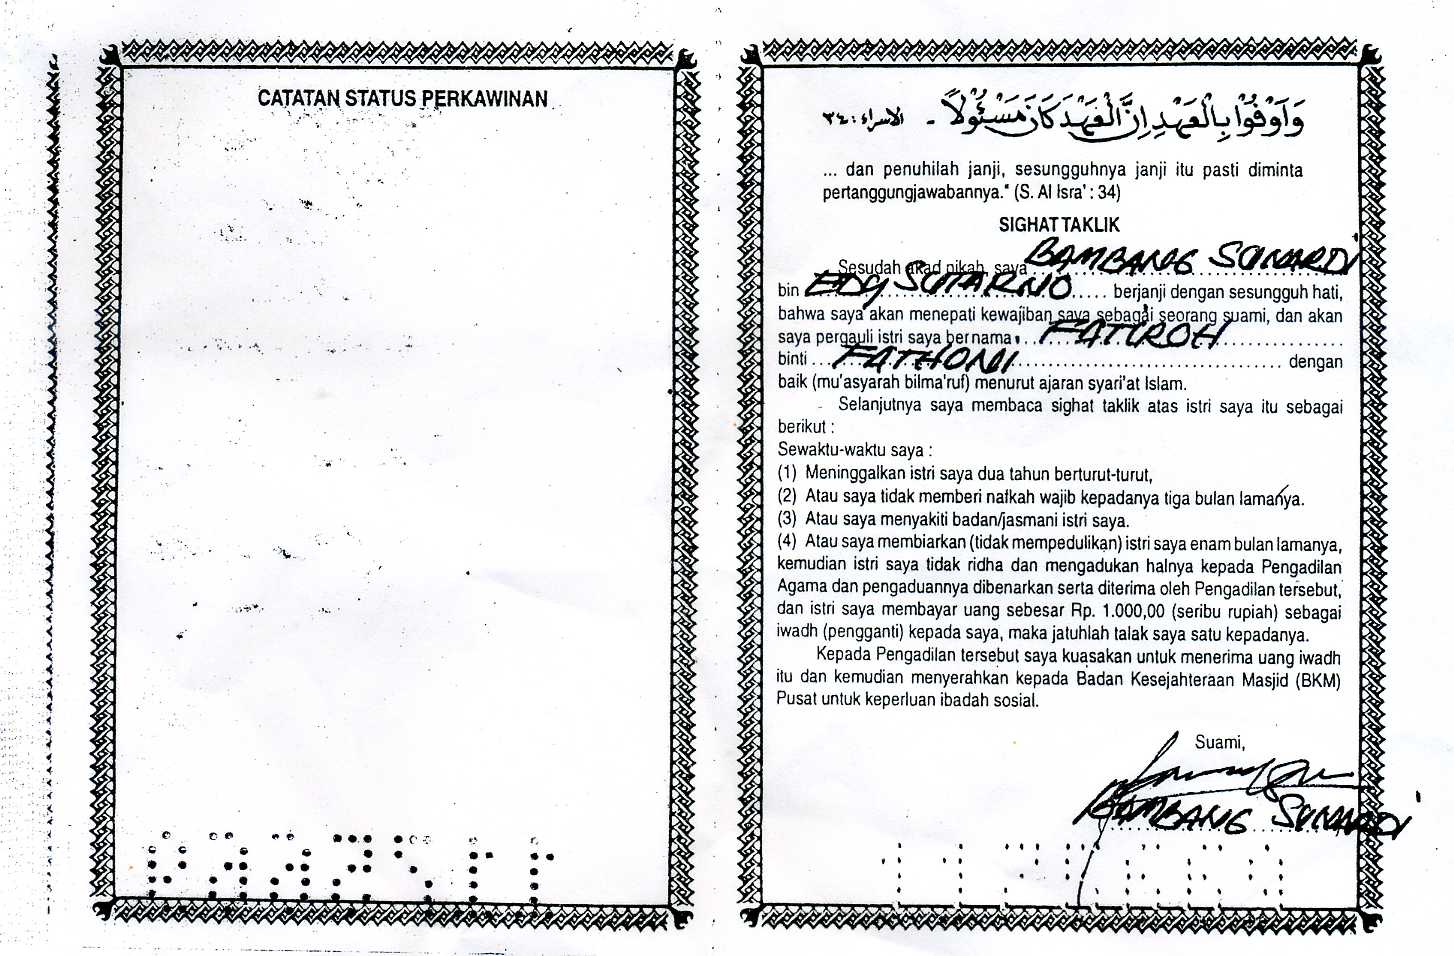 CATATAN STATUS PERKAWINAN
وَاَوْفُوْا بِالْعَهْدِ اِنَّ الْعَهْدَ كَانَ مَسْئُوْلاً - الاسراء : ٣٤
... dan penuhilah janji, sesungguhnya janji itu pasti diminta
pertanggungjawabannya." (S. Al Isra' : 34)
SIGHAT TAKLIK
Sesudah akad nikah, saya BAMBANG SUNARDI
bin EDY SUTARNO berjanji dengan sesungguh hati,
bahwa saya akan menepati kewajiban saya sebagai seorang suami, dan akan
saya pergauli istri saya bernama FATUROH
binti FATHONI dengan
baik (mu'asyarah bilma'ruf) menurut ajaran syari'at Islam.
Selanjutnya saya membaca sighat taklik atas istri saya itu sebagai
berikut :
Sewaktu-waktu saya :
(1) Meninggalkan istri saya dua tahun berturut-turut,
(2) Atau saya tidak memberi nafkah wajib kepadanya tiga bulan lamanya.
(3) Atau saya menyakiti badan/jasmani istri saya.
(4) Atau saya membiarkan (tidak mempedulikan) istri saya enam bulan lamanya,
kemudian istri saya tidak ridha dan mengadukan halnya kepada Pengadilan
Agama dan pengaduannya dibenarkan serta diterima oleh Pengadilan tersebut,
dan istri saya membayar uang sebesar Rp. 1.000,00 (seribu rupiah) sebagai
iwadh (pengganti) kepada saya, maka jatuhlah talak saya satu kepadanya.
Kepada Pengadilan tersebut saya kuasakan untuk menerima uang iwadh
itu dan kemudian menyerahkan kepada Badan Kesejahteraan Masjid (BKM)
Pusat untuk keperluan ibadah sosial.
Suami,
BAMBANG SUNARDI